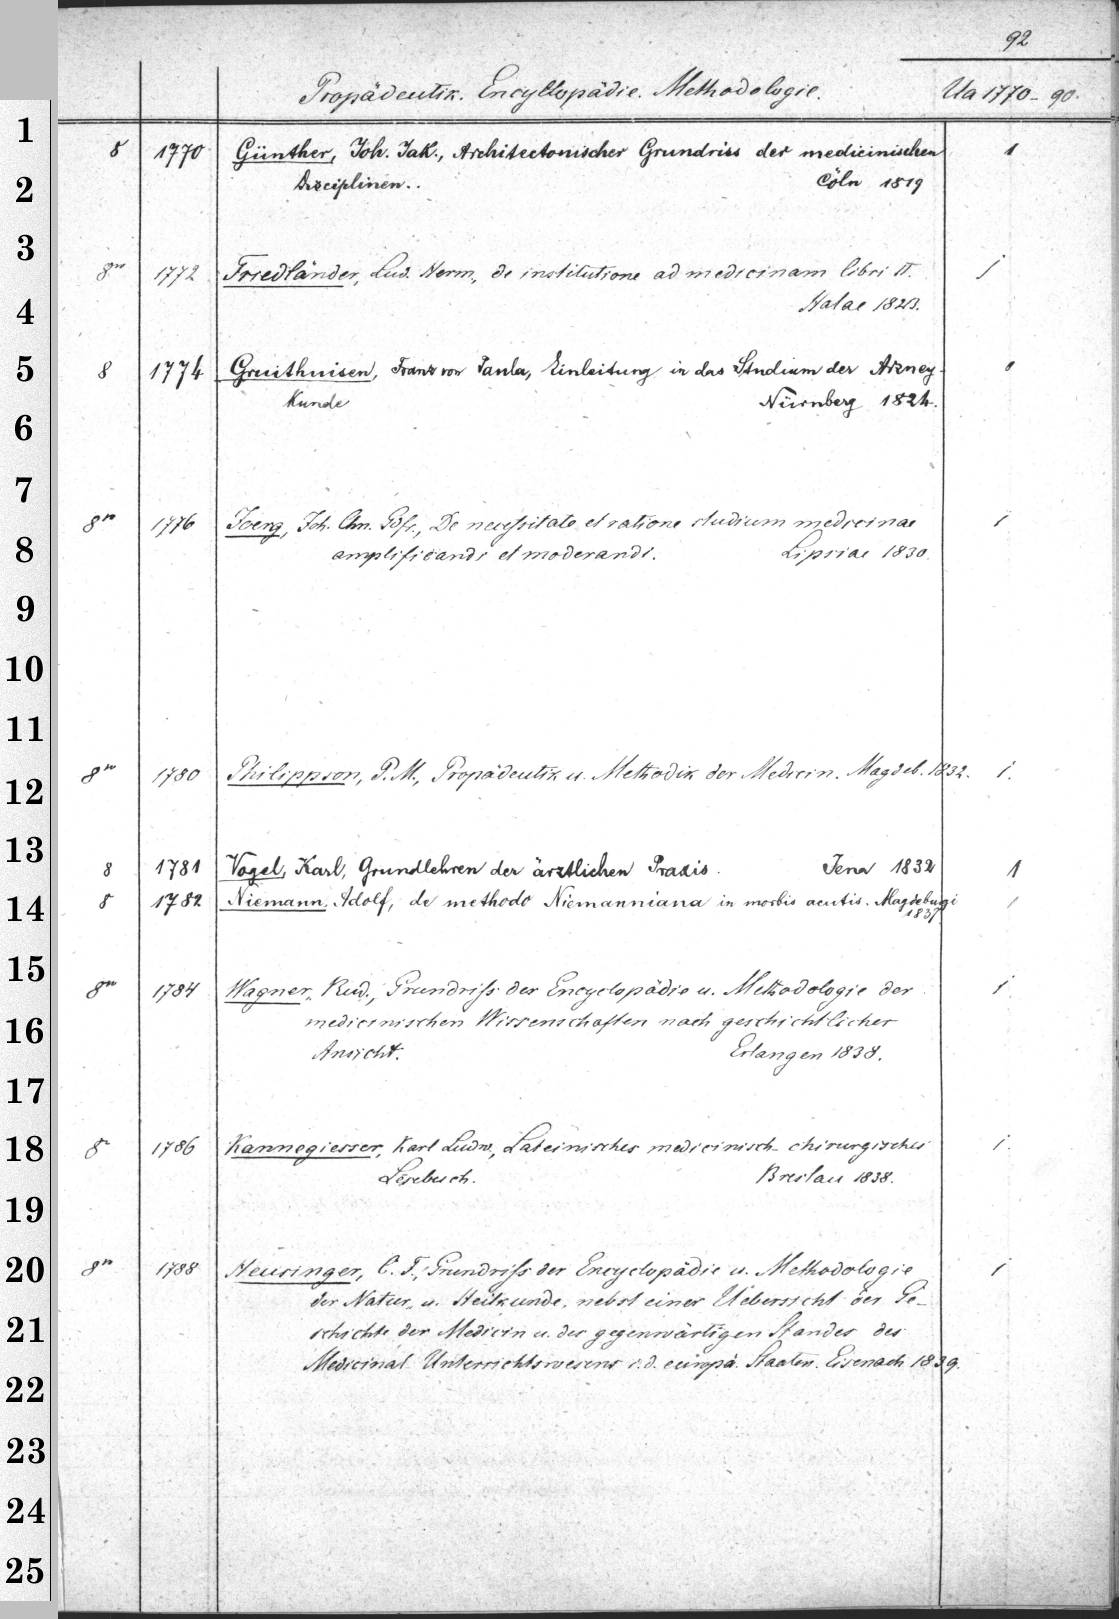 92
Propädeutik. Encyklopädie. Methodologie. Ua 1770-90.
1
8 1770 Günther, Joh. Jak., Architectonischer Grundriss der medicinischen 1
2 Disciplinen.. Cöln 1819
3
8m 1772 Friedländer, Lud. Herm., de institutione ad medicinam libri II. j
4 Halae 1823.
5 8 1774 Gruithuisen, Franz von Paula, Einleitung in das Studium der Arzney-
6 Kunde Nürnberg 1824.
7
8m 1776 Joerg, Joh. Chn. Gfr., De necessitate et ratione studium medicinae i
8 amplificandi et moderandi. Lipsiae 1830.
9
10
11
8m 1780 Philippson, P. M., Propädeutik u. Methodik der Medicin. Magdeb. 1832. i.
12
13
8 1781 Vogel, Karl, Grundlehren der ärztlichen Praxis. Jena 1832 1
14 8 1782 Niemann, Adolf, de methodo Niemanniana in morbis acutis. Magdeburgi /
1837
15
8m 1784 Wagner, Rud., Grundriss der Encyclopädie u. Methodologie der i
16 medicinischen Wissenschaften nach geschichtlicher
Ansicht. Erlangen 1838.
17
18 8 1786 Kannegiesser, Karl Ludw., Lateinisches medicinisch-chirurgisches i.
Lesebuch. Breslau 1838.
19
20 8m 1788 Heusinger, C. F., Grundriss der Encyclopädie u. Methodologie i
der Natur- u. Heilkunde, nebst einer Uebersicht der Ge-
21 schichte der Medicin u. des gegenwärtigen Standes des
Medicinal-Unterrichtswesens i. d. europä. Staaten. Eisenach 1839.
22
23
24
25